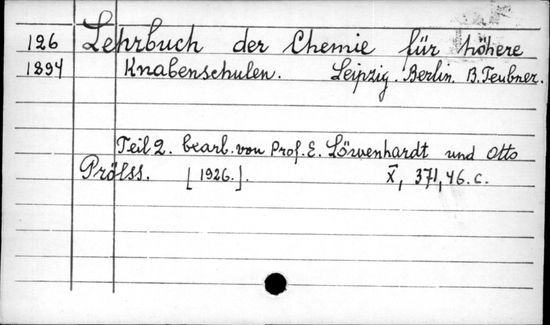 126 Lehrbuch der Chemie für höhere
1894 Knabenschulen. Leipzig. Berlin. B. Teubner.
Teil 2. bearb. von Prof. E. Löwenhardt und Otto
Prölss. [1926.]. X, 371, 46. c.